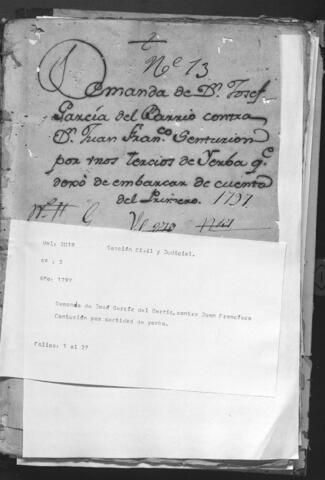 t
Nº 13
Demanda de Dn. Josef
García del Barrio contra
Dn. Juan Franco. Centurion
por unos Tercios de Yerba qe.
dexó de embarcar de cuenta
del Primero. 1797.
Vol: 2019 Sección Civil y Judicial.
Nº : 3
Año: 1797
Demanda de José García del Barrio, contra Juan Francisco
Centurión por cantidad de yerba.
Folios: 1 al 27